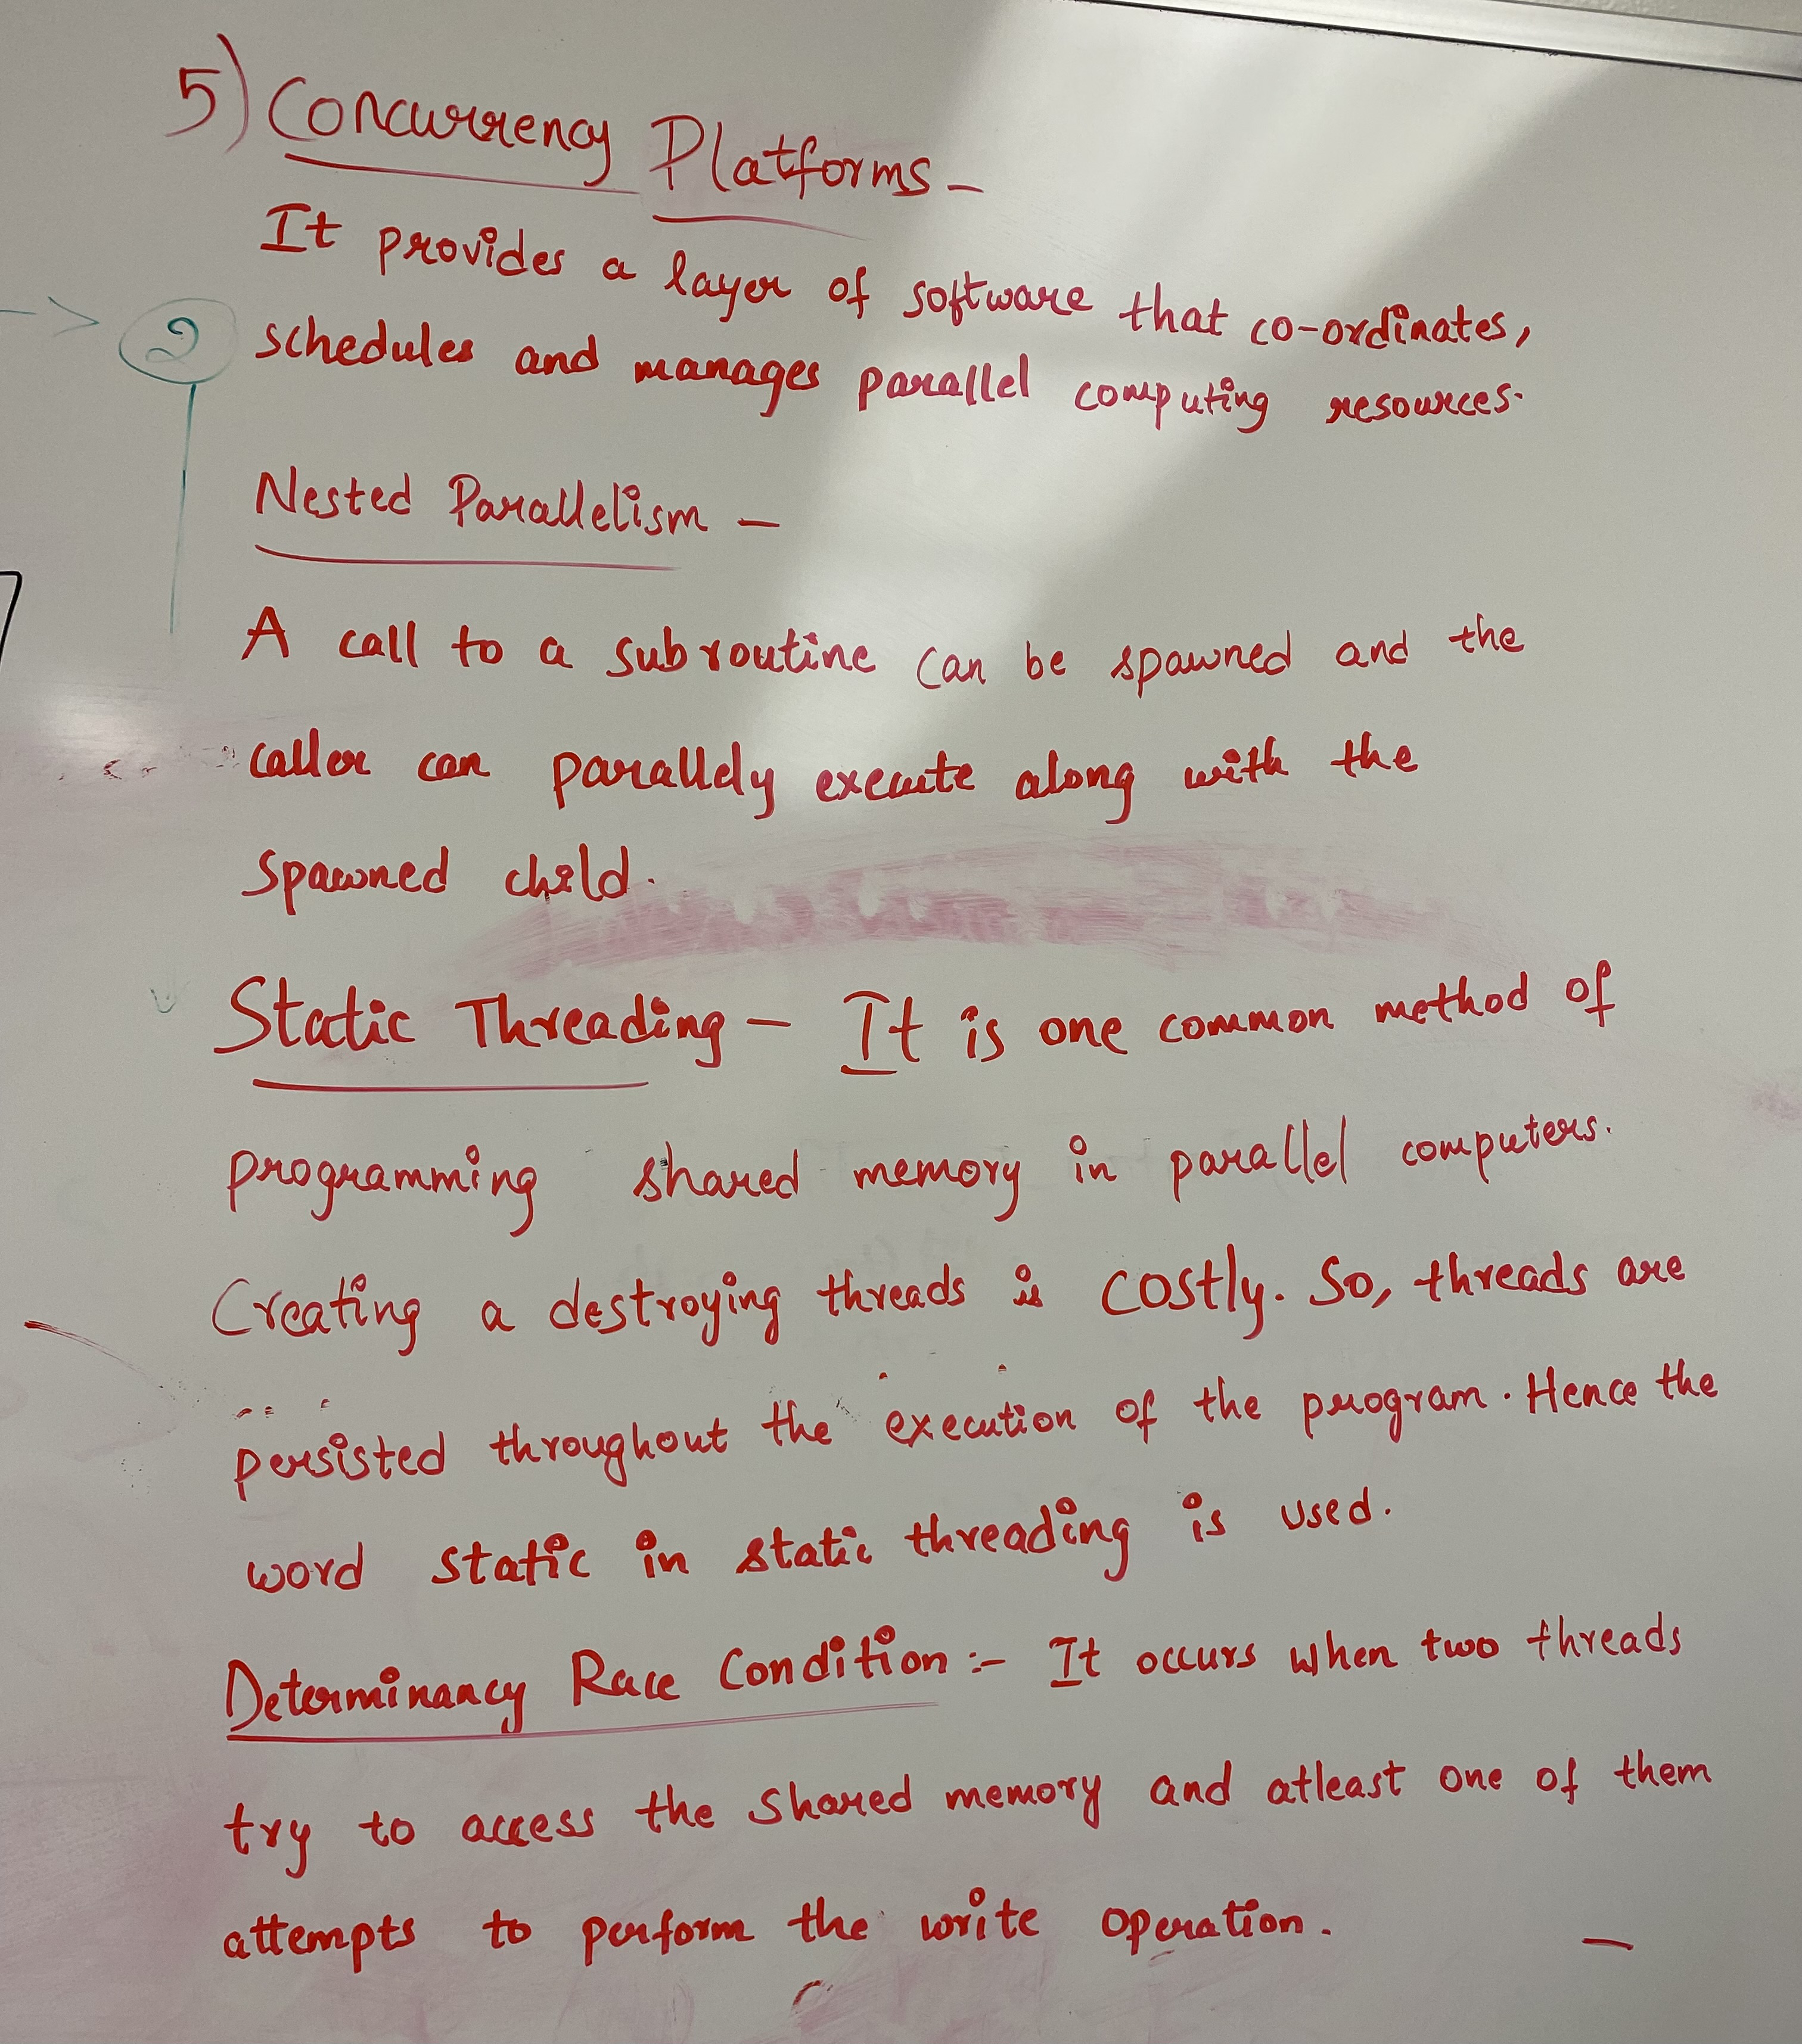 5) Concurrency Platforms -
It provides a layer of software that co-ordinates,
2
schedules and manages parallel computing resources.
Nested Parallelism -
A call to a subroutine can be spawned and the
caller can parallely execute along with the
spawned child.
Static Threading - It is one common method of
programming shared memory in parallel computers.
Creating a destroying threads is costly. So, threads are
persisted throughout the execution of the program. Hence the
word static in static threading is used.
Determinancy Race Condition :- It occurs when two threads
try to access the shared memory and atleast one of them
attempts to perform the write operation.